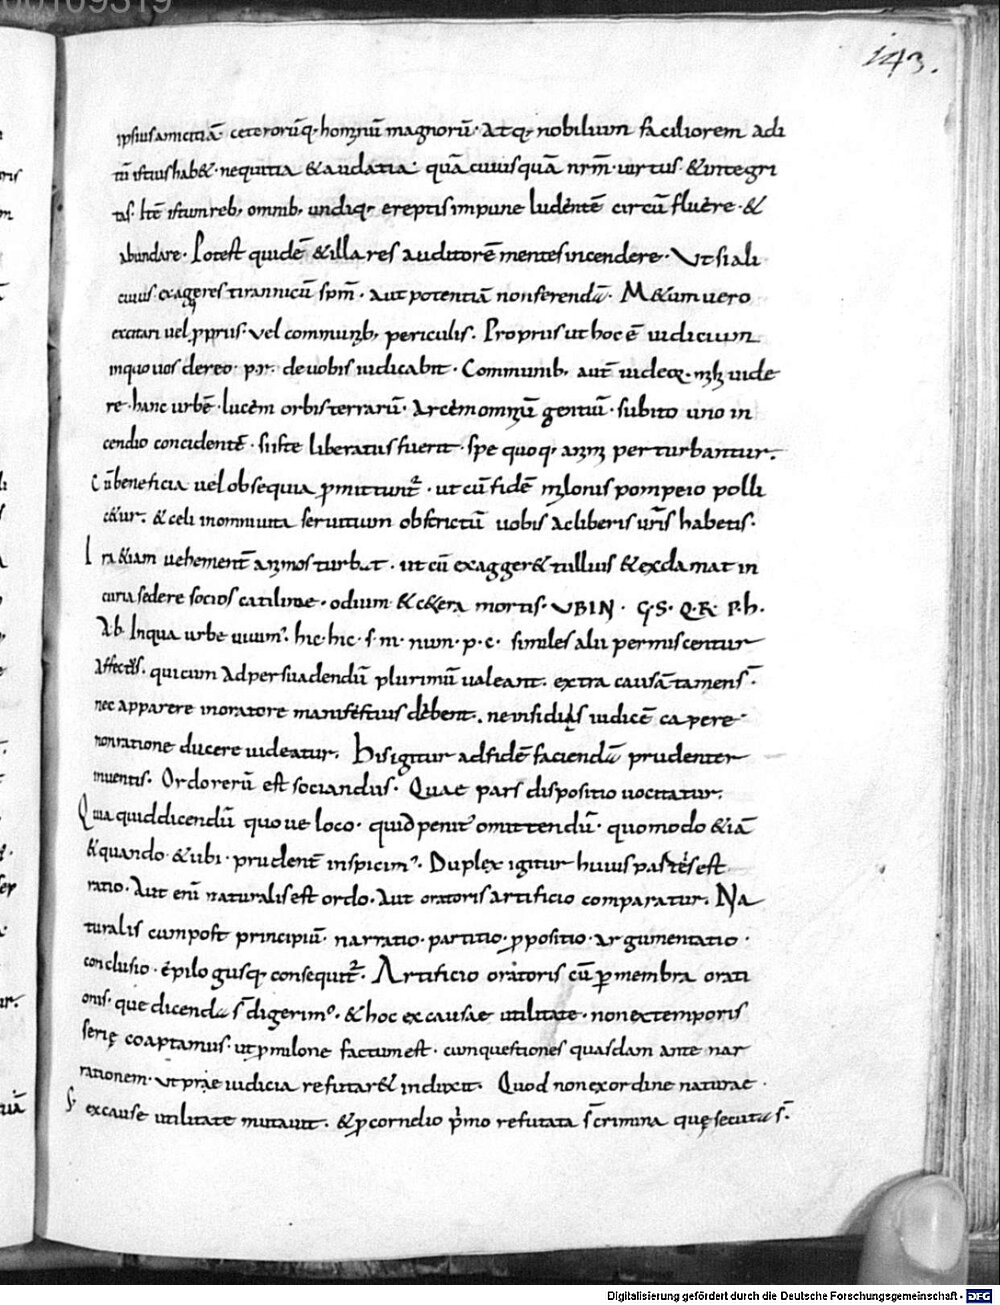 00109319
143.
ipsius amicitiā ceterorūq; hominū magnorū. Atq; nobilium faciliorem adi
tū istius hab&. nequitia & audatia. quā cuiusquā nrm̄. uirtus. &integri
tas. Itē istum reb; omnib; undiq; ereptis impune ludentē circū fluere. &
abundare. Potest quidē & illa res auditorē mentes incendere. Ut si ali
cuius exageres tirannicū spm̄. aut potentiā non ferendā. M&um uero
excitari uel pprius. vel communib; periculis. Proprius ut hoc ē iudicium
inquo uos de reo. p.r. de uobis iudicabit. Communib; aut̄ uideor. mihi uide
re. hanc urbē. lucem orbis terrarū. Arcem omniū gentiū. subito uno in
cendio concidentē. si iste liberatus fuerit. spe quoq; animi perturbantur.
Cū beneficia uel obsequia pmittunt̄. ut cū fidē milonis pompeio polli
c&ur. & celi inommuita seruitium obstrictū uobis ac liberis uris̄ habetis.
Ira &iam uehement̄ animos turbat. ut cū exagger& tullius & exclamat in
curia sedere socios catiline. odium & c&era mortis. UBIN. G.S. Q.R. P.h.
Ab Inqua urbe uiuim'. hic. hic. s. m. num. p. c. similes alii permiscentur
Affectūs. qui cum ad persuadendū plurimū ualeant. extra causā tamen s̄.
nec apparere in oratore manifestius debent. ne insidiis iudicē capere
non ratione ducere uideatur. His igitur ad fidē faciendā prudenter
inuentis. Ordo rerū est sociandus. Quae pars dispositio uocitatur.
Quia quid dicendū quoue loco. quid penit' omittendū. quomodo &iā
& quando. & ubi. prudent̄ inspicim'. Duplex igitur huius partis est
ratio. Aut enī naturalis est ordo. Aut oratoris artificio comparatur. Na
turalis cum post principiū. narratio. partitio. ppositio. argumentatio.
conclusio. epilogusq; consequit̄. Artificio oratoris cū p membra orati
onis. que dicenda s̄ digerim'. & hoc ex causae utilitate. non ex temporis
serię coaptamus. ut p milone factum est. cum questiones quasdam ante nar
rationem. ut prae iudicia refutar& induxit. Quod non ex ordine naturae.
s; ex cause utilitate mutauit. & p cornelio pmo refutata s̄ crimina quę secuta s̄.
Digitalisierung gefördert durch die Deutsche Forschungsgemeinschaft - DFG